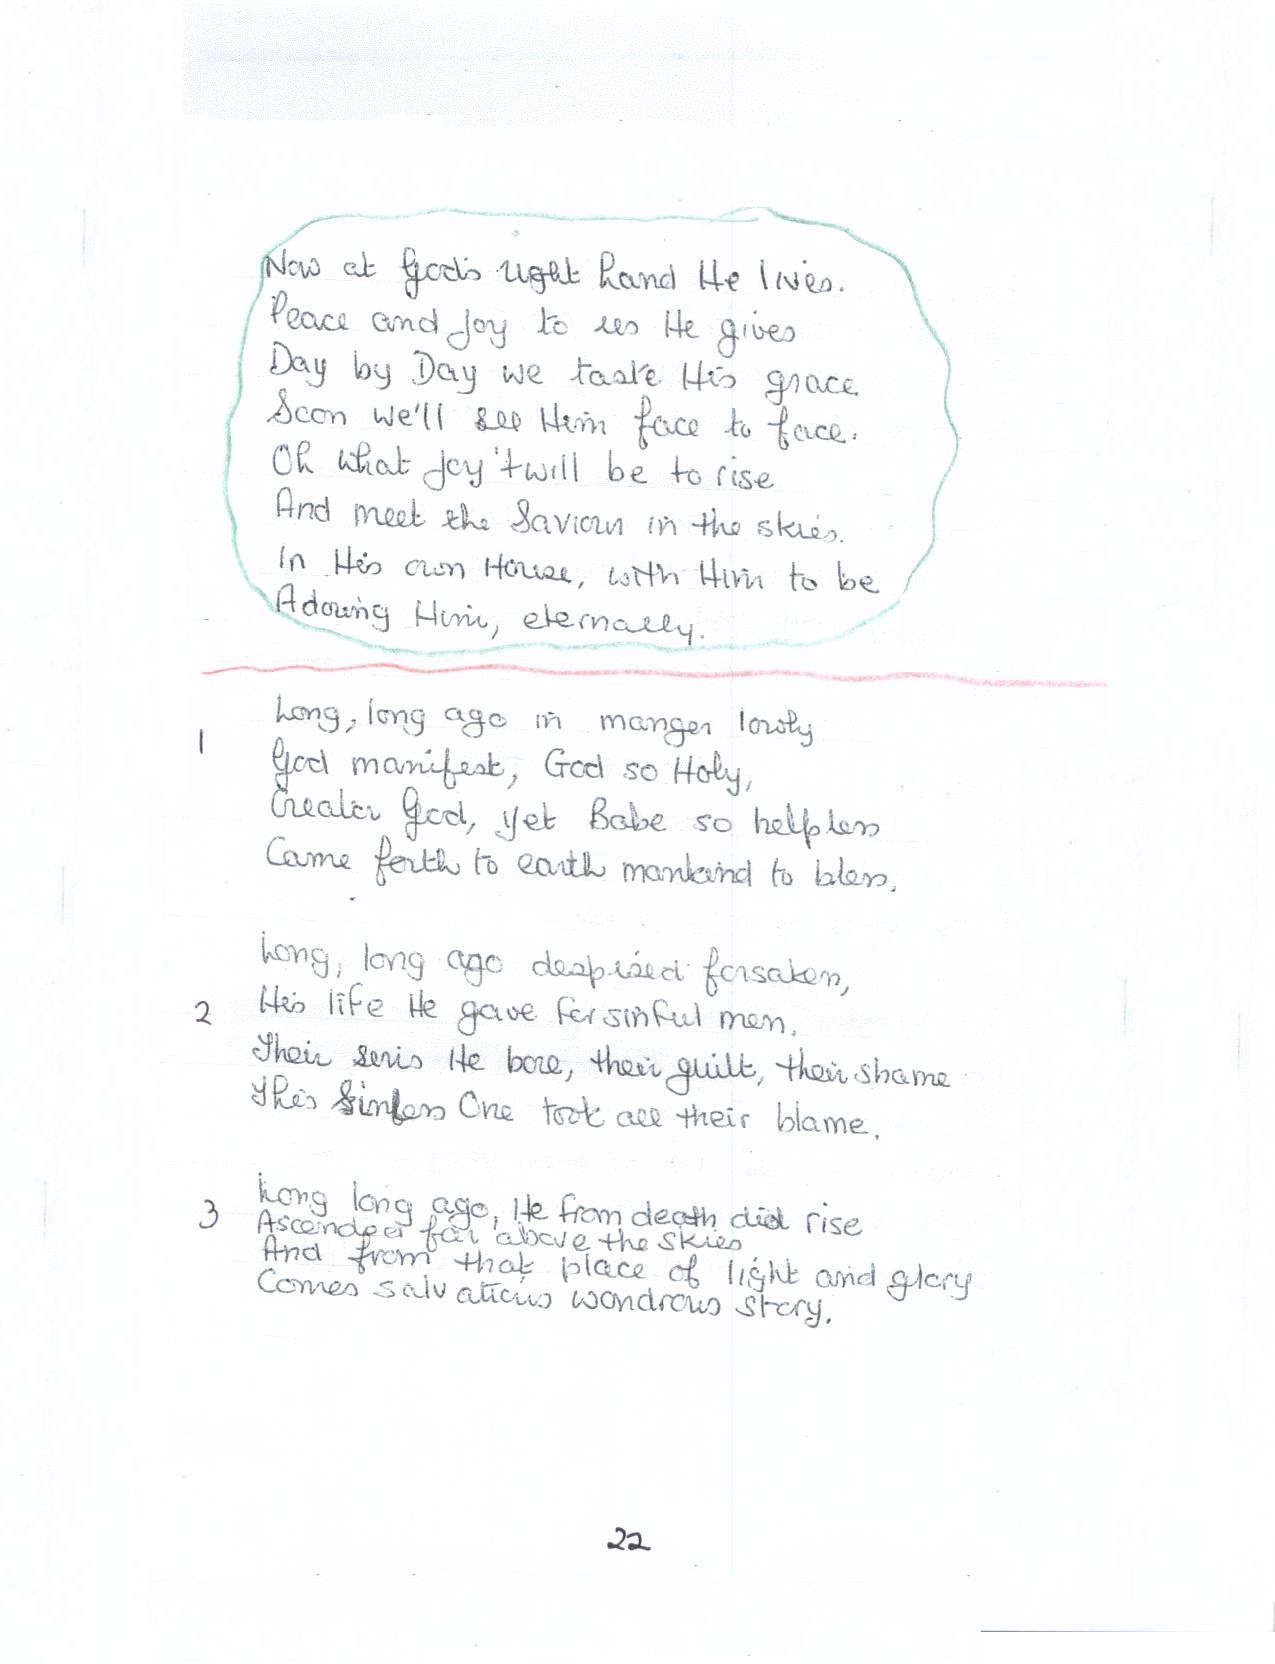 Now at God's right hand He lives.
Peace and Joy to us He gives
Day by Day we taste His grace
Soon we'll see Him face to face.
Oh what Joy 'twill be to rise
And meet the Saviour in the skies.
In His own House, with Him to be
Adoring Him, eternally.
1
Long, long ago in manger lowly
God manifest, God so Holy,
Creator God, yet Babe so helpless
Came forth to earth mankind to bless.
2
Long, long ago despised forsaken,
His life He gave for sinful men.
Their sins He bore, their guilt, their shame
This Sinless One took all their blame.
3
Long long ago, He from death did rise
Ascended far above the skies
And from that place of light and glory
Comes salvations wondrous story.
22